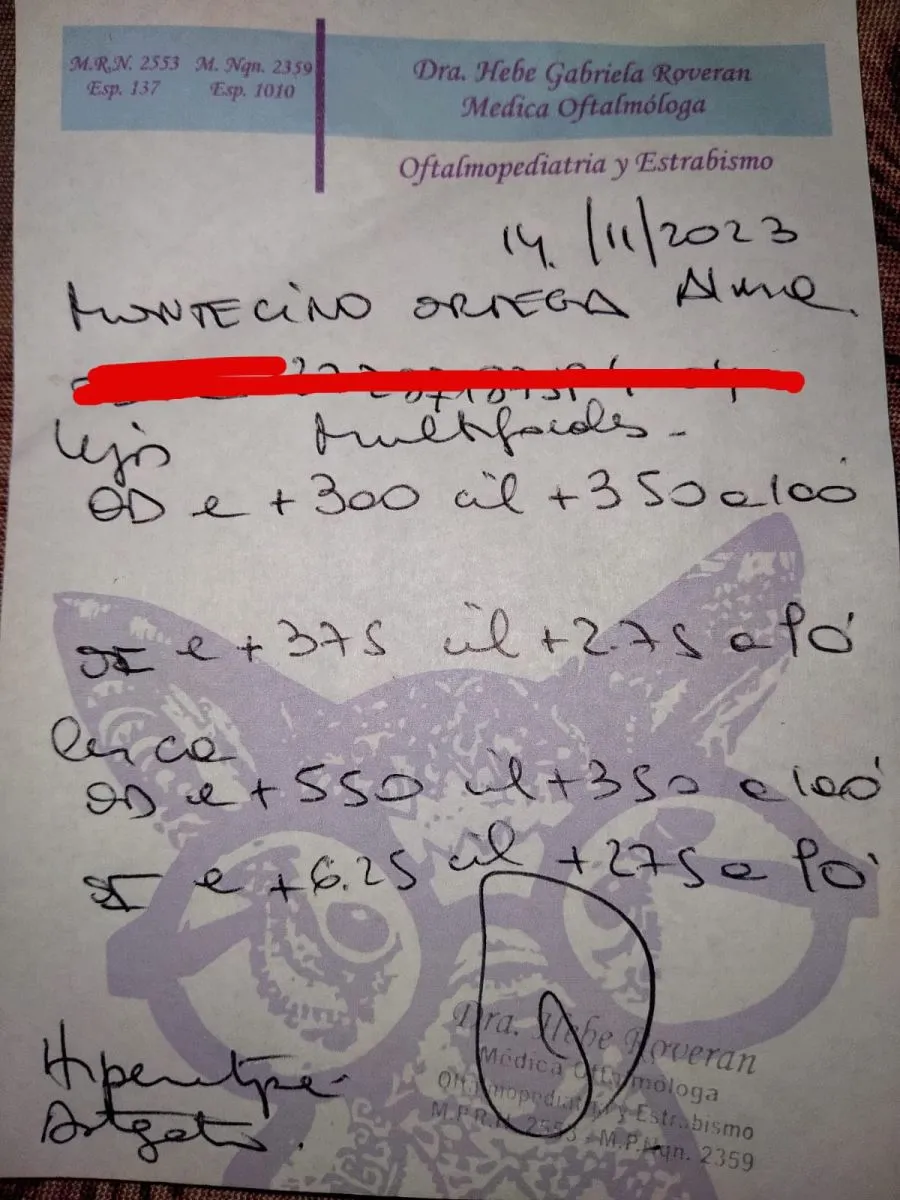 M.R.N. 2553 M. Nqn. 2359
Esp. 137 Esp. 1010
Dra. Hebe Gabriela Roveran
Medica Oftalmóloga
Oftalmopediatria y Estrabismo
14/11/2023
MONTECINO ORTEGA Alma
lejos Multifocales -
OD e +300 cil +350 a 100°
OI e +375 cil +2.75 a 90°
cerca
OD e +550 cil +350 a 100°
OI e +6.25 cil +275 a 90°
Dra. Hebe Roveran
Médica Oftalmóloga
Oftalmopediatría y Estrabismo
M.P.R.N. 2553 - M.P.Nqn. 2359